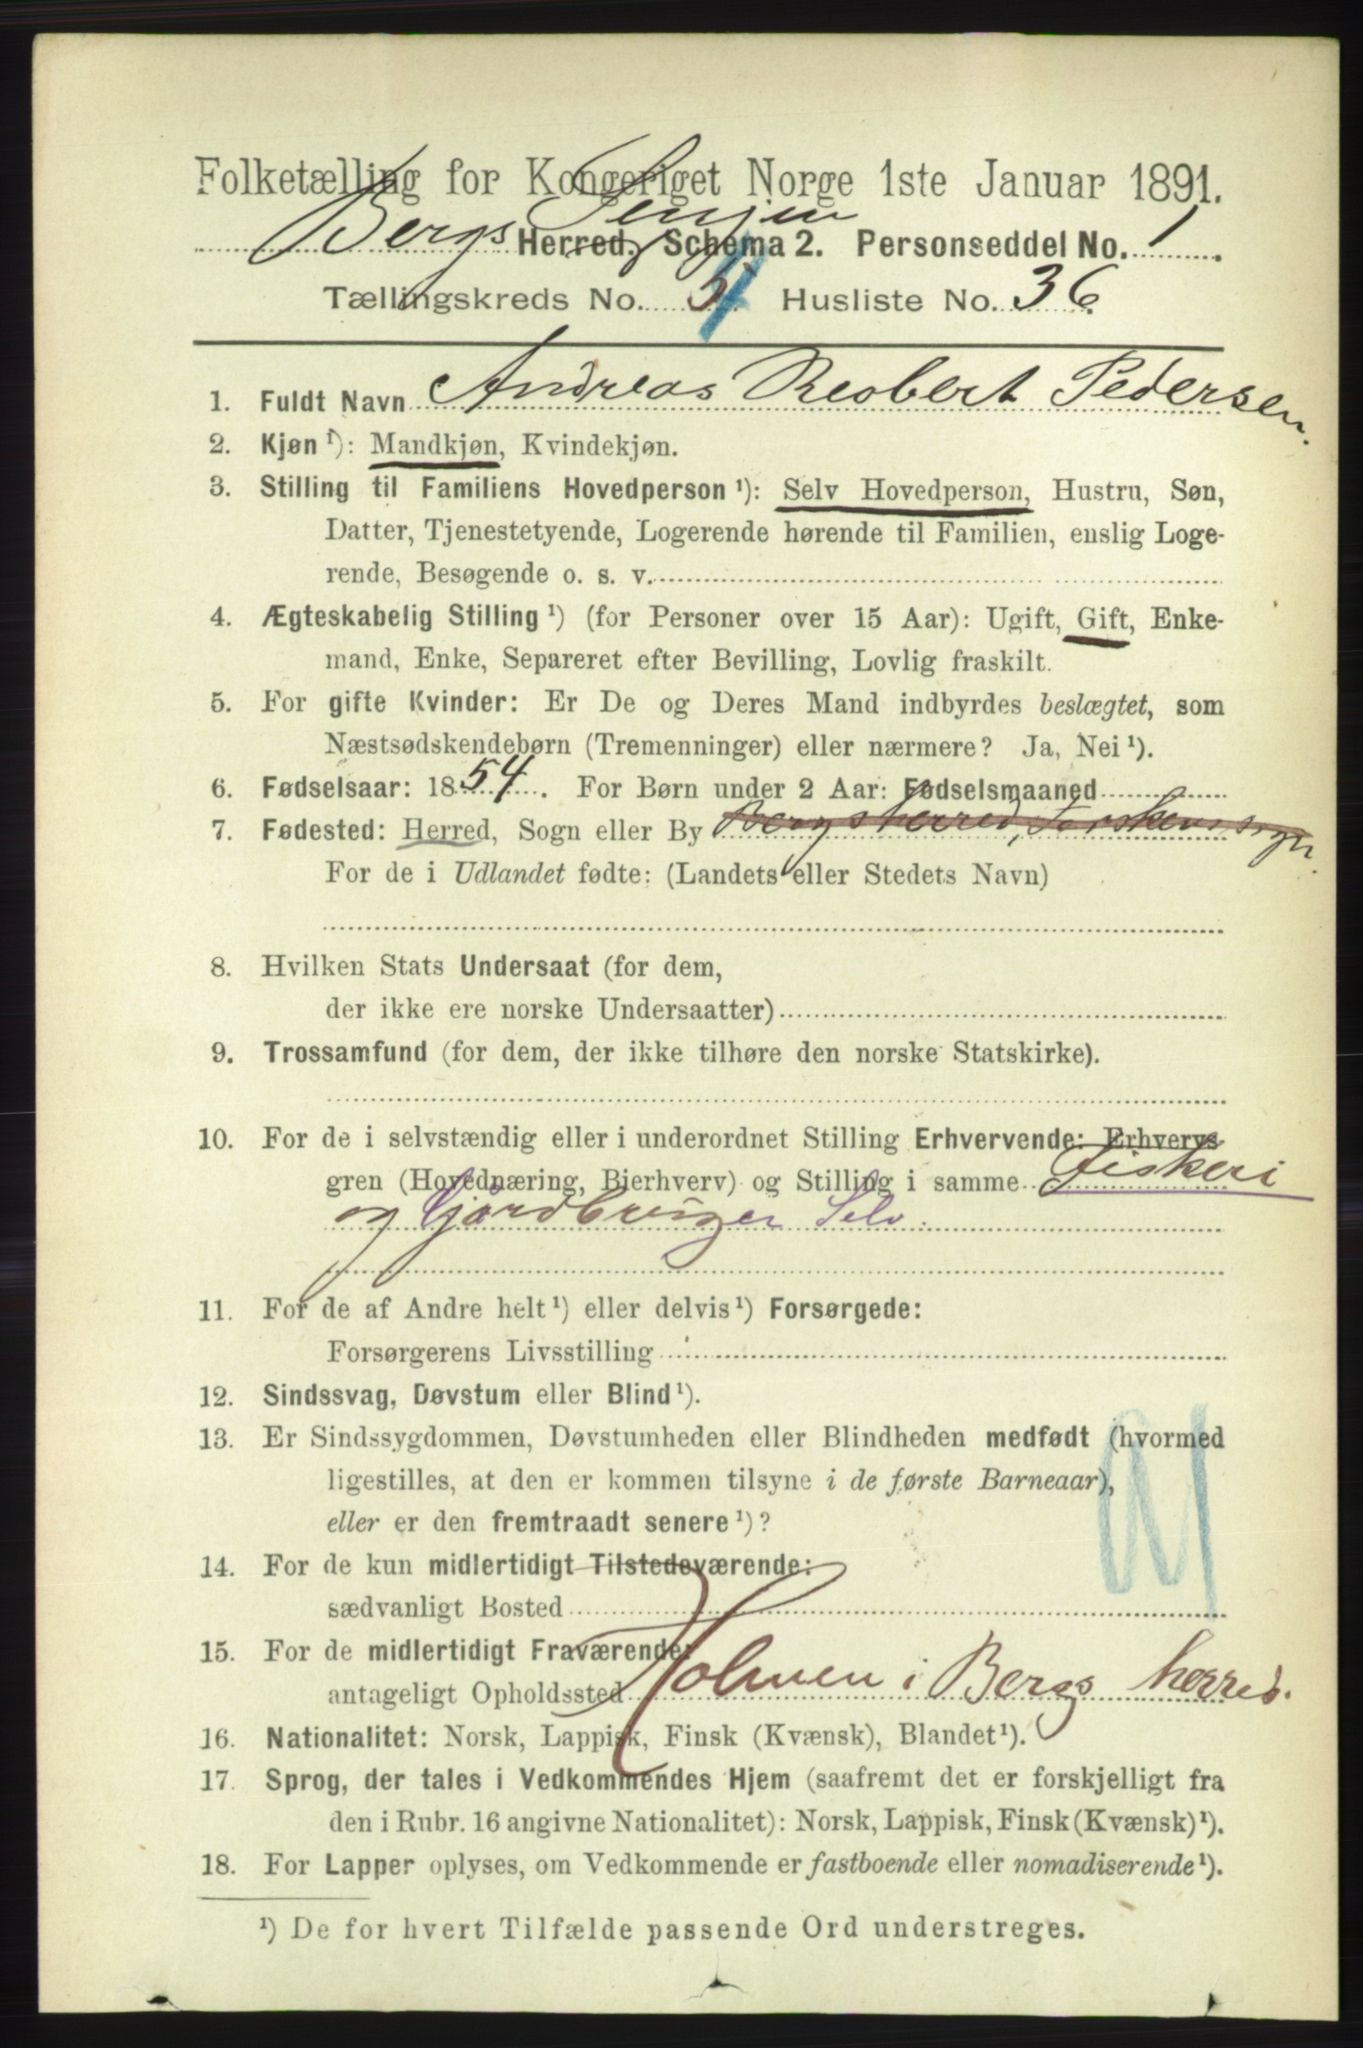 Folketælling for Kongeriget Norge 1ste Januar 1891.
Bergs Senjen Herred. Schema 2. Personseddel No. 1.
Tællingskreds No. 5. Husliste No. 36.
1. Fuldt Navn Andreas Reobert Pedersen.
2. Kjøn ¹): Mandkjøn, Kvindekjøn.
3. Stilling til Familiens Hovedperson ¹): Selv Hovedperson, Hustru, Søn,
Datter, Tjenestetyende, Logerende hørende til Familien, enslig Loge-
rende, Besøgende o. s. v.
4. Ægteskabelig Stilling ¹) (for Personer over 15 Aar): Ugift, Gift, Enke-
mand, Enke, Separeret efter Bevilling, Lovlig fraskilt.
5. For gifte Kvinder: Er De og Deres Mand indbyrdes beslægtet, som
Næstsødskendebørn (Tremenninger) eller nærmere? Ja, Nei ¹).
6. Fødselsaar: 1854. For Børn under 2 Aar: Fødselsmaaned
7. Fødested: Herred, Sogn eller By Bergsherred, Torskens sogn.
For de i Udlandet fødte: (Landets eller Stedets Navn)
8. Hvilken Stats Undersaat (for dem,
der ikke ere norske Undersaatter)
9. Trossamfund (for dem, der ikke tilhøre den norske Statskirke).
10. For de i selvstændig eller i underordnet Stilling Erhvervende: Erhvervs
gren (Hovednæring, Bierhverv) og Stilling i samme Fiskeri
og Gjordbruger Selv.
11. For de af Andre helt ¹) eller delvis ¹) Forsørgede:
Forsørgerens Livsstilling
12. Sindssvag, Døvstum eller Blind ¹).
13. Er Sindssygdommen, Døvstumheden eller Blindheden medfødt (hvormed
ligestilles, at den er kommen tilsyne i de første Barneaar),
eller er den fremtraadt senere ¹)?
14. For de kun midlertidigt Tilstedeværende:
sædvanligt Bosted
15. For de midlertidigt Fraværende:
antageligt Opholdssted Holmen i Bergs herred.
16. Nationalitet: Norsk, Lappisk, Finsk (Kvænsk), Blandet ¹).
17. Sprog, der tales i Vedkommendes Hjem (saafremt det er forskjelligt fra
den i Rubr. 16 angivne Nationalitet): Norsk, Lappisk, Finsk (Kvænsk) ¹).
18. For Lapper oplyses, om Vedkommende er fastboende eller nomadiserende ¹).
¹) De for hvert Tilfælde passende Ord understreges.